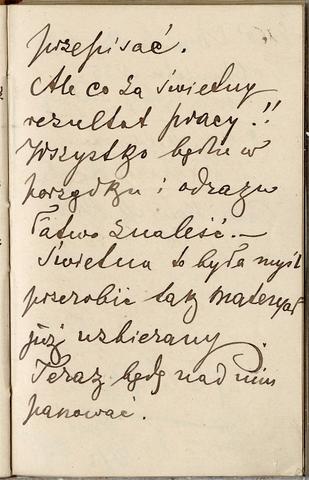 przepisać.
Ale co za świetny
rezultat pracy!!
Wszystko będzie w
porządku i odrazu
łatwo znaleść. –
Świetna to była myśl
przerobić tak materjał
już uzbierany.
Teraz będę nad nim
panować.